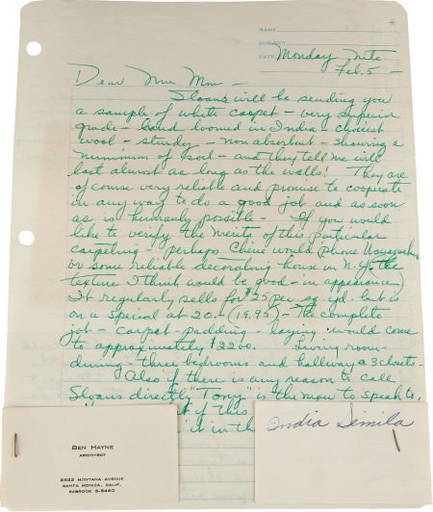 NAME
SUBJECT
DATE Monday nite
Feb. 5 -
Dear Mrs. Mm -
Sloans will be sending you
a sample of white carpet - very superior
grade - hand loomed in India - choicest
wool - sturdy - non absorbent - showing a
minimum of soil - and they tell me will
last almost as long as the walls! They are
of course very reliable and promise to cooperate
in any way to do a good job and as soon
as is humanly possible - If you would
like to verify the merits of this particular
carpeting - perhaps Cherie would phone
or some reliable decorating house in N.Y. (the
texture I think would be good - in appearance)
It regularly sells for $25 per sq yd. but is
on a special at 20. - (19.95) - The complete
job - carpet - padding - laying would come
to approximately $3200. - Living room -
dining - three bedrooms and hallway & 3 closets -
Also if there is any reason to call
Sloans directly "Tony" is the man to speak to.
if this
is in th
BEN HAYNE
ARCHITECT
2322 MONTANA AVENUE
SANTA MONICA, CALIF.
EXBROOK 5-5460
India Simila